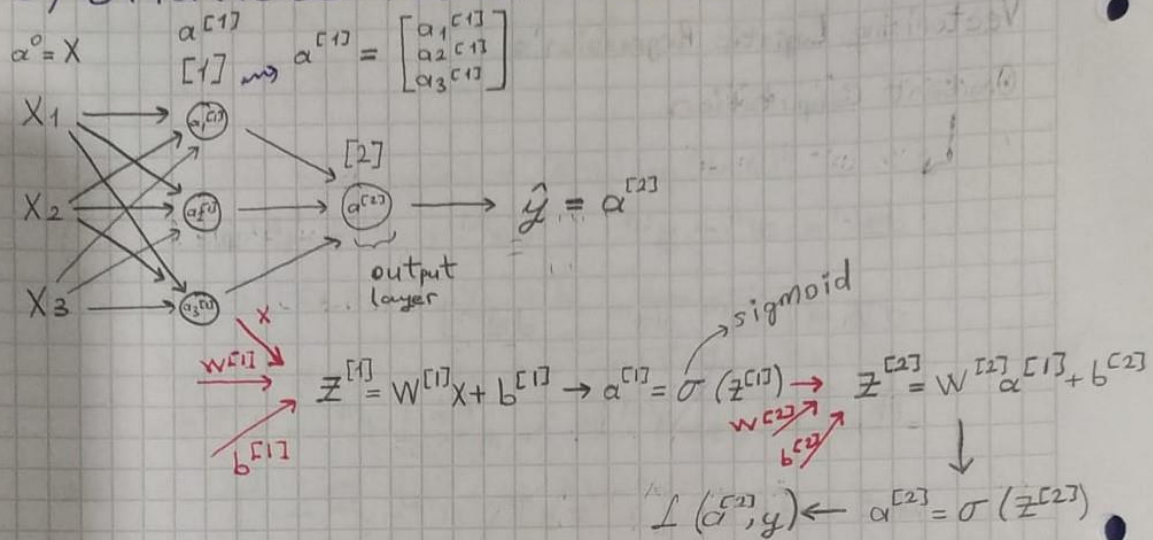 a⁰ = X
a^[1]
[1] ⟿ a^[1] = [a₁^[1] a₂^[1] a₃^[1]]
X₁
a₁^[1]
[2]
X₂
a₂^[1]
a^[2] → ŷ = a^[2]
output
layer
X₃
a₃^[1]
sigmoid
x
W^[1]
b^[1]
Z^[1] = W^[1]x + b^[1] → a^[1] = σ(Z^[1]) → Z^[2] = W^[2]a^[1] + b^[2]
W^[2]
b^[2]
L(a^[2], y) ← a^[2] = σ(Z^[2])